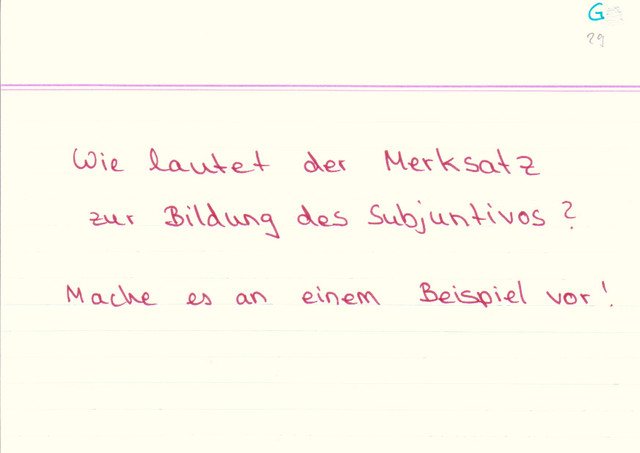 G
29
Wie lautet der Merksatz
zur Bildung des Subjuntivos?
Mache es an einem Beispiel vor!